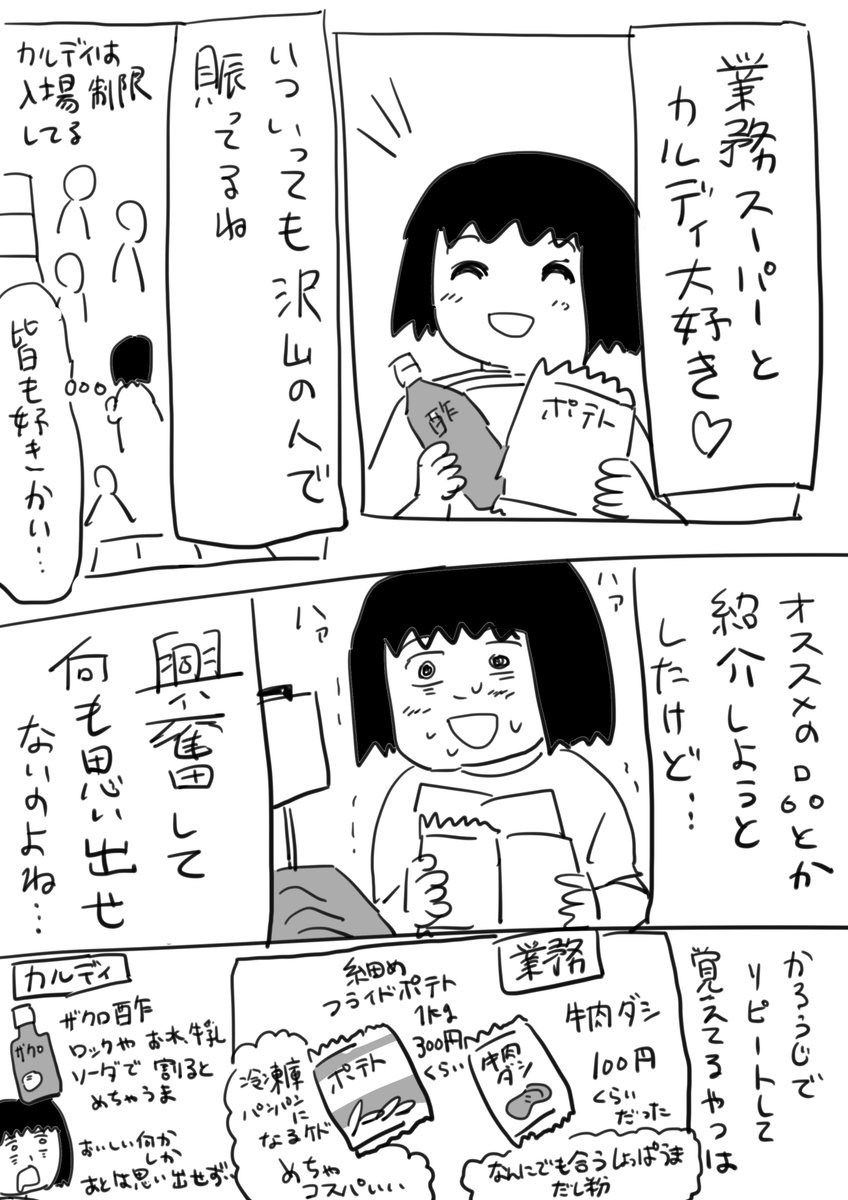 業務スーパーと
カルディ大好き♡
酢
ポテト
いついっても沢山の人で
賑ってるね
カルディは
入場制限
してる
皆も好きかい…
オススメの品とか
紹介しようと
したけど…
ハァ
ハァ
興奮して
何も思い出せ
ないのよね…
かろうじで
リピートして
覚えてるやつは
業務
牛肉ダシ
100円
くらい
だった
牛肉
ダシ
なんにでも合うしょっぱうま
だし粉
細め
フライドポテト
1kg
300円
くらい
ポテト
冷凍庫
パンパンに
なるケド
めちゃ
コスパいい
カルディ
ザクロ酢
ロックや お水、牛乳
ソーダで 割ると
めちゃうま
ザクロ
おいしい何か
しか
あとは思い出せず…